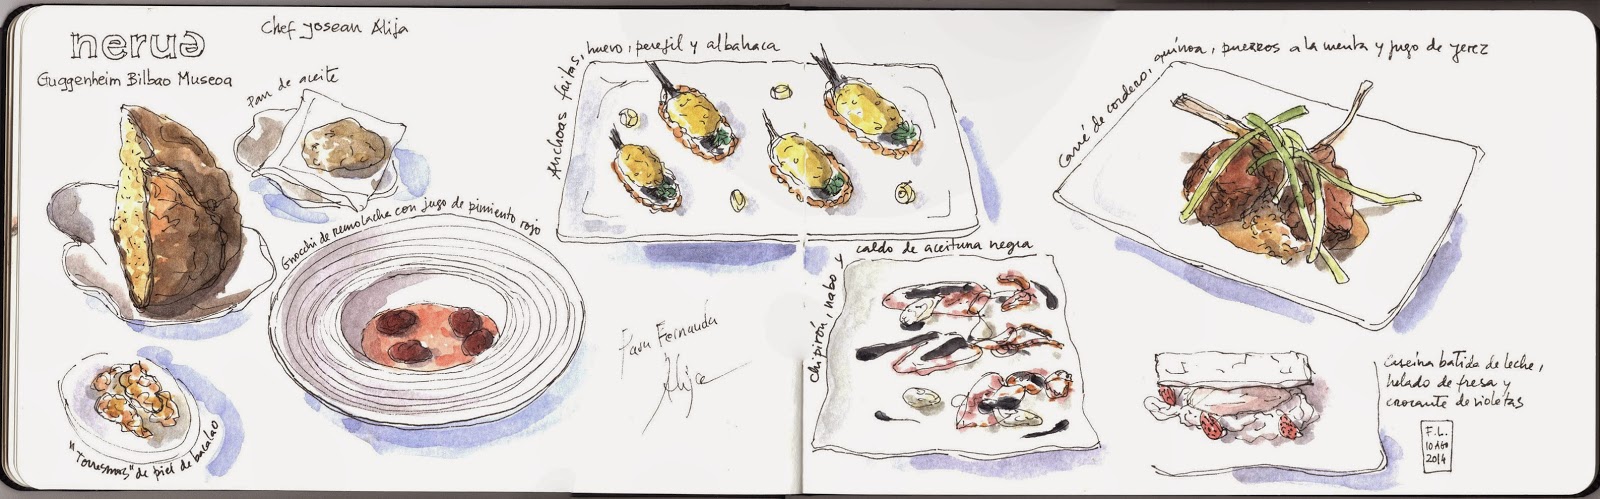 nerua
Guggenheim Bilbao Museoa
Chef Josean Alija
Pan de aceite
Gnocchi de remolacha con jugo de pimiento rojo
"Torresmos" de piel de bacalao
Anchoas fritas, huevo, perejil y albahaca
Para Fernanda
Alija
Chipirón, nabo y
caldo de aceituna negra
Carré de cordero, quinoa, puerros a la menta y jugo de jerez
Caseína batida de leche,
helado de fresa y
crocante de violetas
F.L.
10 AGO
2014